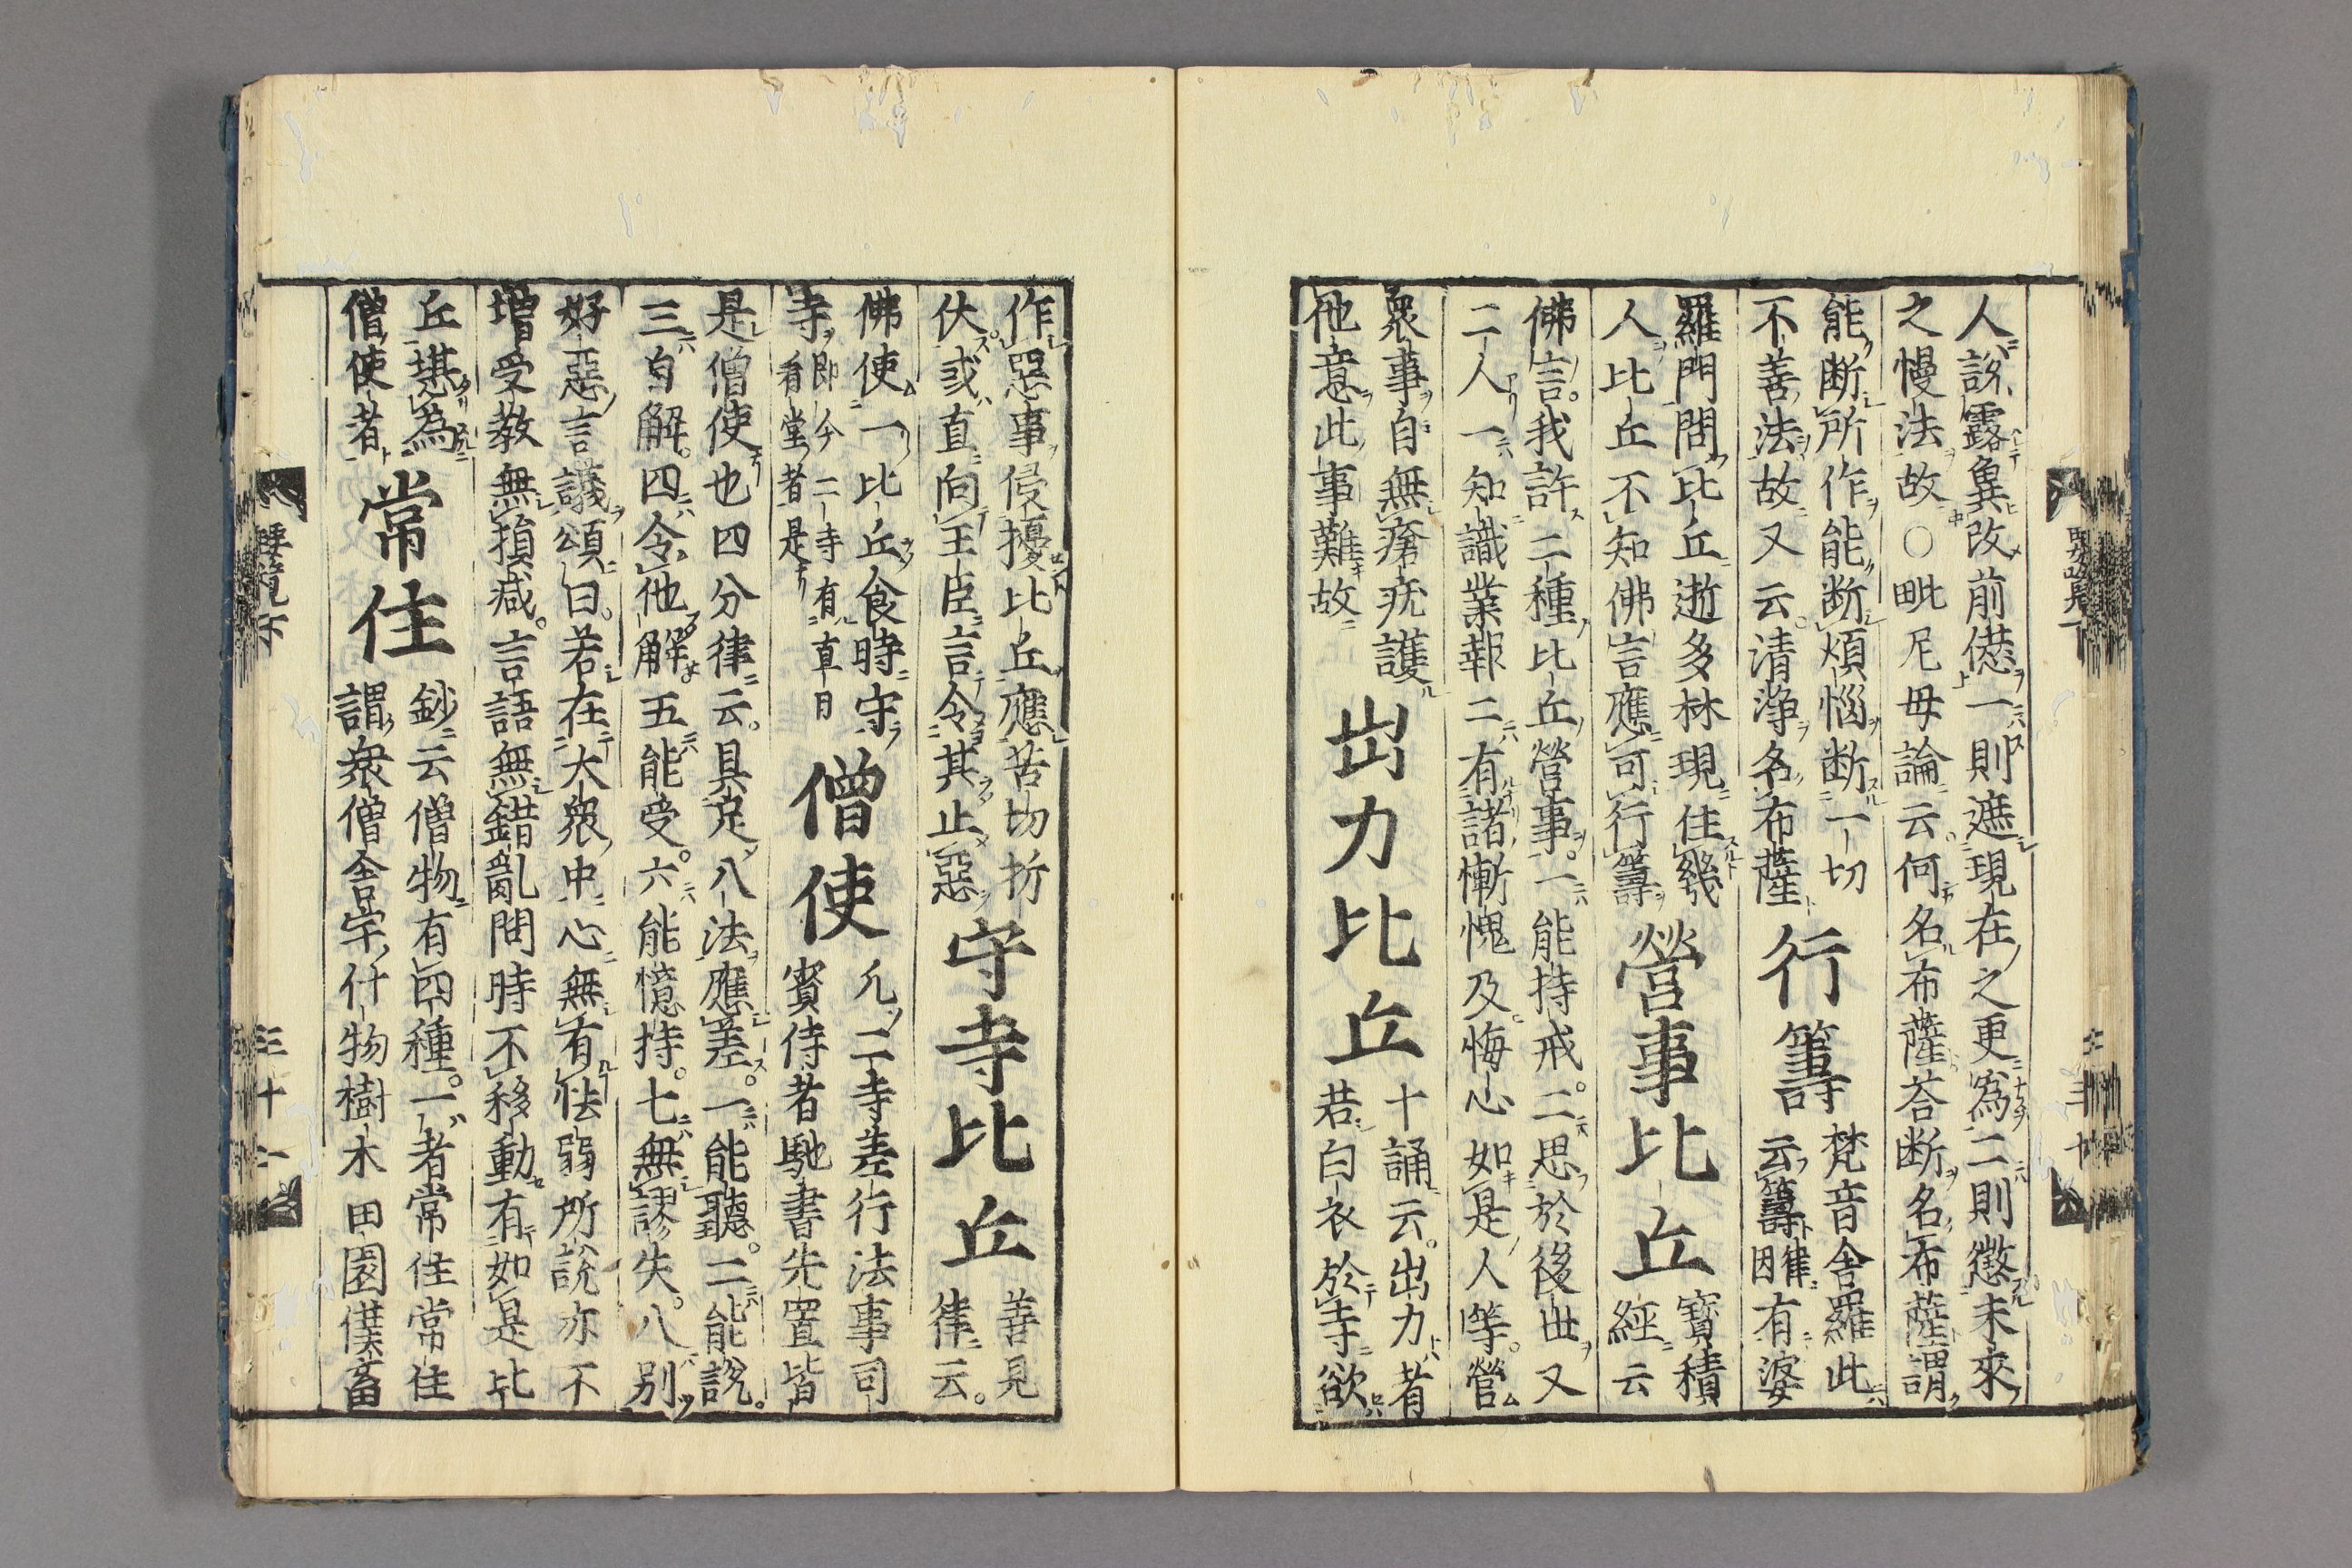 人說露冀改前愆一則遮現在之更為二則懲未來
之慢法故○毗尼母論云何名布薩荅断名布薩謂
能断所作能断煩惱断一切
不善法故又云清淨名布薩
行籌
梵音舍羅此
云籌律因有婆
羅門問比丘逝多林現住幾
人比丘不知佛言應可行籌
營事比丘
寶積
經云
佛言我許二種比丘營事。一能持戒。二思於後世又
二人一知識業報二有諸慚愧及悔心如是人等。營
衆事自無瘡疣護
他意此事難故
出力比丘
十誦云。出力者
若白衣於寺欲
作惡事侵擾比丘應苦切折
伏或直向王臣言令其止惡
守寺比丘
善見
律云。
佛使一比丘食時守
寺即今二寺有直日
看堂者是
僧使
凡二寺差行法事司
賓侍者馳書先置皆
是僧使也四分律云。具足八法應差。一能聽。二能說。
三自解。四令他解五能受。六能憶持。七無謬失。八別
好惡言議頌曰。若在大衆中心無有怯弱所說亦不
增受教無損減。言語無錯亂問時不移動有如是比
丘堪為
僧使者
常住
鈔云僧物有四種。一者常住常住
謂衆僧舍宇什物樹木田園僕畜
要覽下
三十一